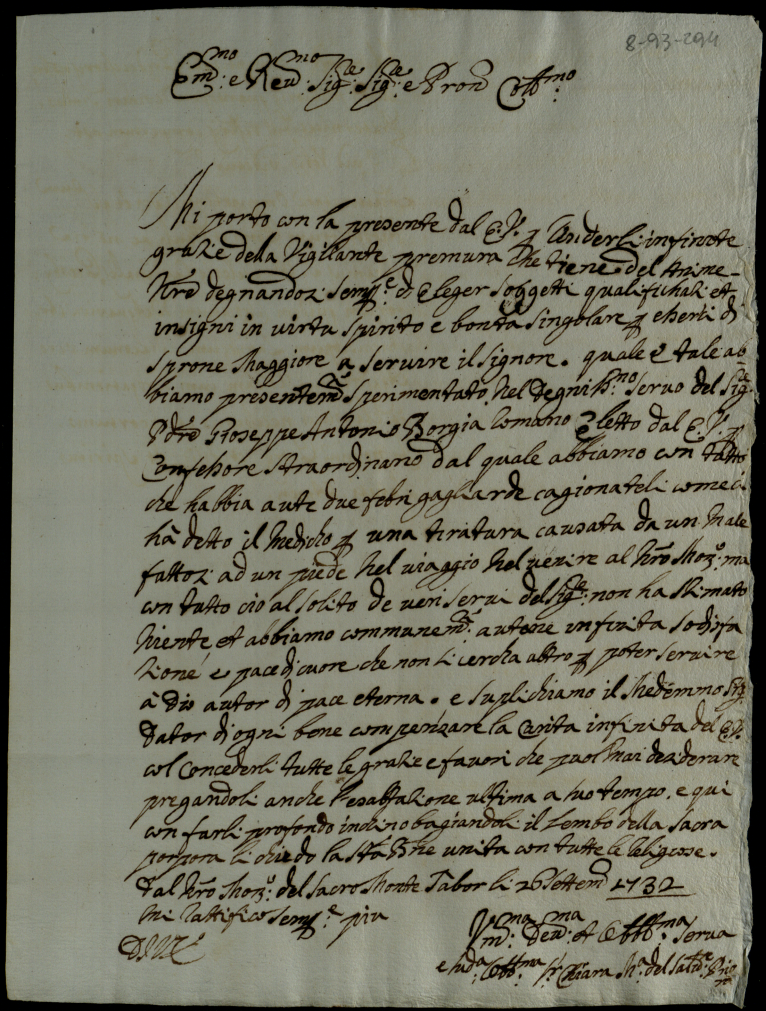 8-93-294
Em:mo e Reu:mo Sig:re Sig:re e Pron Coll:mo
Mi porto con la presente dal E.V. p renderli infinite
grazie della Vigilante premura che tiene del Anime
Nre degnandozi semp:e di Eleger Soggetti qualifichati et
insigni in virtu spirito e bonta singolare p esserli di
sprone Maggiore a seruire il Signore. quale e tale ab
biamo presentem:te sperimentato nel Degniss:mo Seruo del Sig:re
Pdre Gioseppe Antonio Borgia Romano Eletto dal E.V. p
Confessore straordinario dal quale abbiamo con tutto
che habbia aute due febri gagliarde cagionateli come ci
hà detto il Medicho p una tiratura causata da un Male
fattozi ad un piede nel uiaggio nel uenire al Nro Moz:o ma
con tutto cio al solito de ueri serui del Sig:re non ha stimato
niente et abbiamo communem:te autone infinita sodisfa
zione e pace di cuore che non si cercha altro p poter seruire
a Dio autor di pace eterna. e suplichiamo il Medemmo Sig:re
Dator di ogni bene compenzare la Carita infinita del E.V.
col Concederli tutte le grazie e fauori che puol mai deziderare
pregandoli anche l'esaltazione ultima a suo tempo. e qui
con farli profondo inchino bagiandoli il Lembo della Sacra
porpora li chiedo la Sta Bne unita con tutte le Religiose.
Dal Nro Moz:o del Sacro Monte Tabor li 26 Settem 1732
Mi Rattifico semp:e piu
D.V.E.
Vm:ma Deu:ma et Obbl:ma Serua
e sud:a Obb:ma Sr Chiara M:a del Salu:re Prio:ra